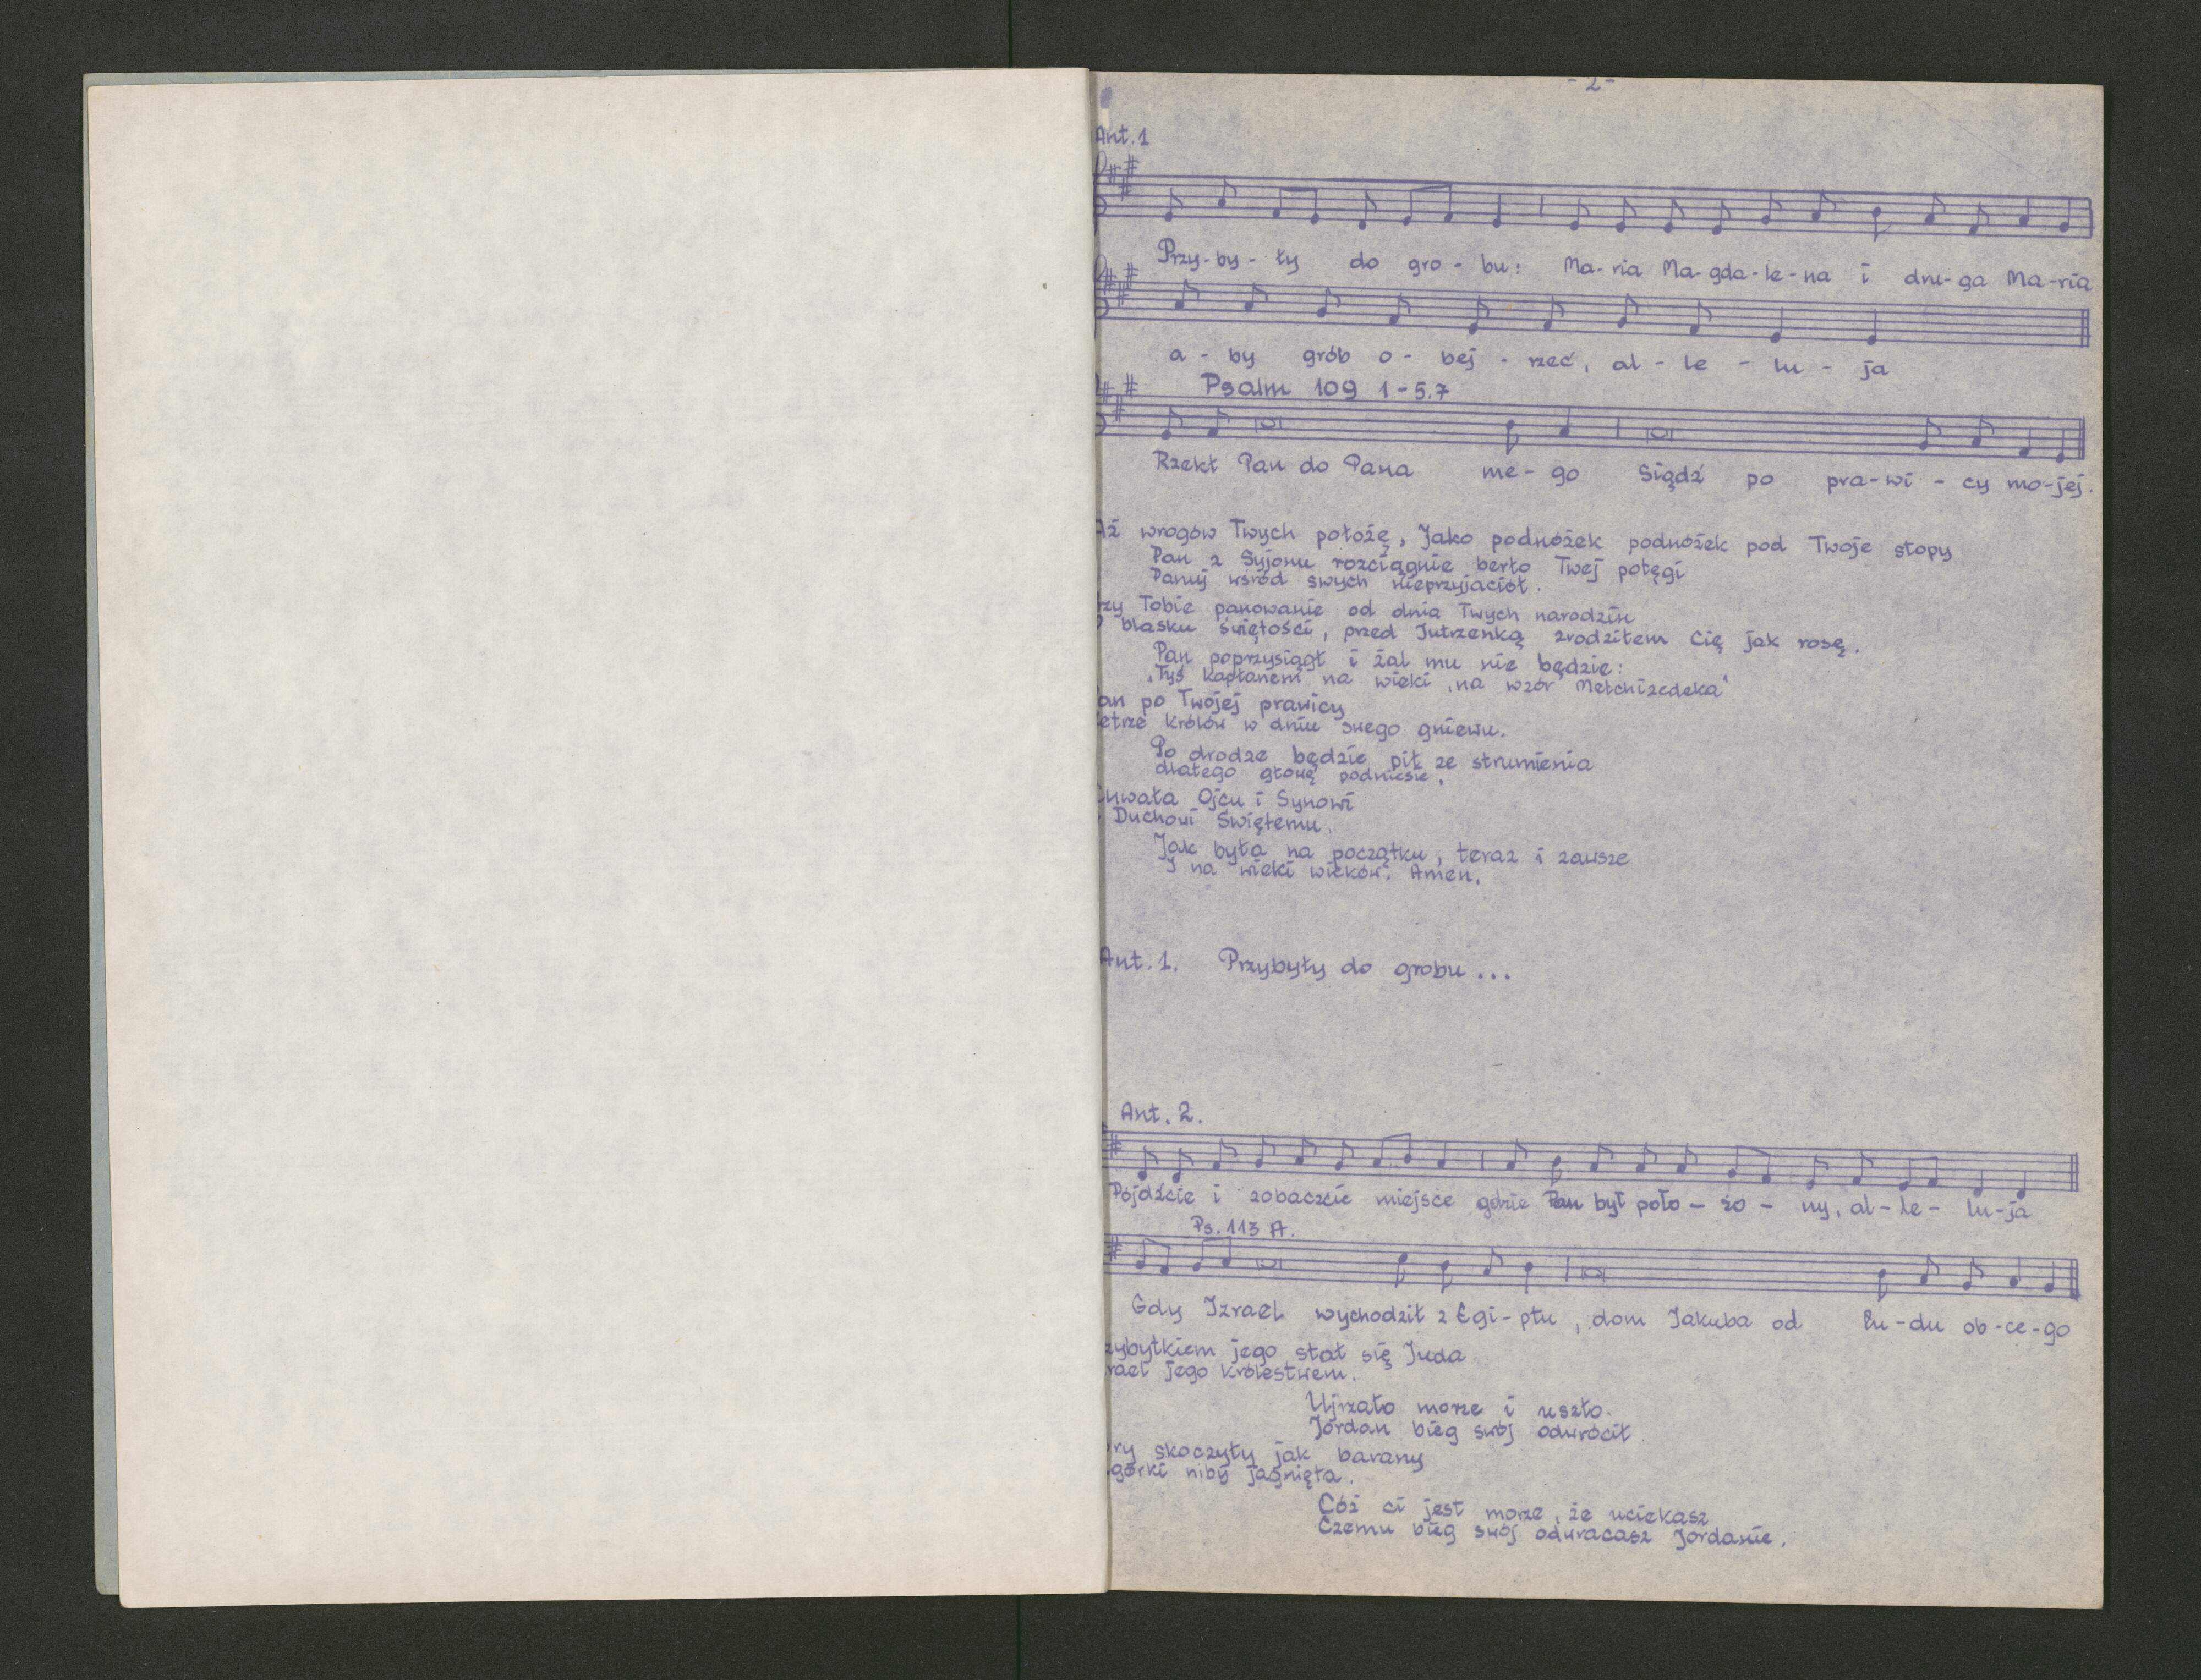 -2-
Ant. 1
Przy-by-ły do gro-bu: Ma-ria Ma-gda-le-na i dru-ga Ma-ria
a-by grób o-bej-rzeć, al-le-lu-ja
Psalm 109 1-5.7
Rzekł Pan do Pana me-go Siądź po pra-wi-cy mo-jej.
Aż wrogów Twych położę, Jako podnóżek podnóżek pod Twoje stopy
Pan z Syjonu rozciągnie berło Twej potęgi
Panuj wśród swych nieprzyjaciół.
rzy Tobie panowanie od dnia Twych narodzin
blasku świętości, przed Jutrzenką zrodziłem Cię jak rosę.
Pan poprzysiągł i żal mu nie będzie:
"Tyś kapłanem na wieki, na wzór Melchizedeka"
an po Twojej prawicy
etrze królów w dniu swego gniewu.
Po drodze będzie pił ze strumienia
dlatego głowę podniesie.
Chwała Ojcu i Synowi
i Duchowi Świętemu.
Jak była na początku, teraz i zawsze
J na wieki wieków. Amen.
Ant. 1. Przybyły do grobu...
Ant. 2.
Pójdźcie i zobaczcie miejsce gdzie Pan był poło-żo-ny, al-le-lu-ja
Ps. 113 A.
Gdy Jzrael wychodził z Egi-ptu, dom Jakuba od lu-du ob-ce-go
zybytkiem jego stał się Juda
rael jego królestwem.
Ujrzało morze i uszło.
Jordan bieg swój odwrócił.
óry skoczyły jak barany
górki niby jagnięta.
Cóż ci jest morze, że uciekasz
Czemu bieg swój odwracasz Jordanie.